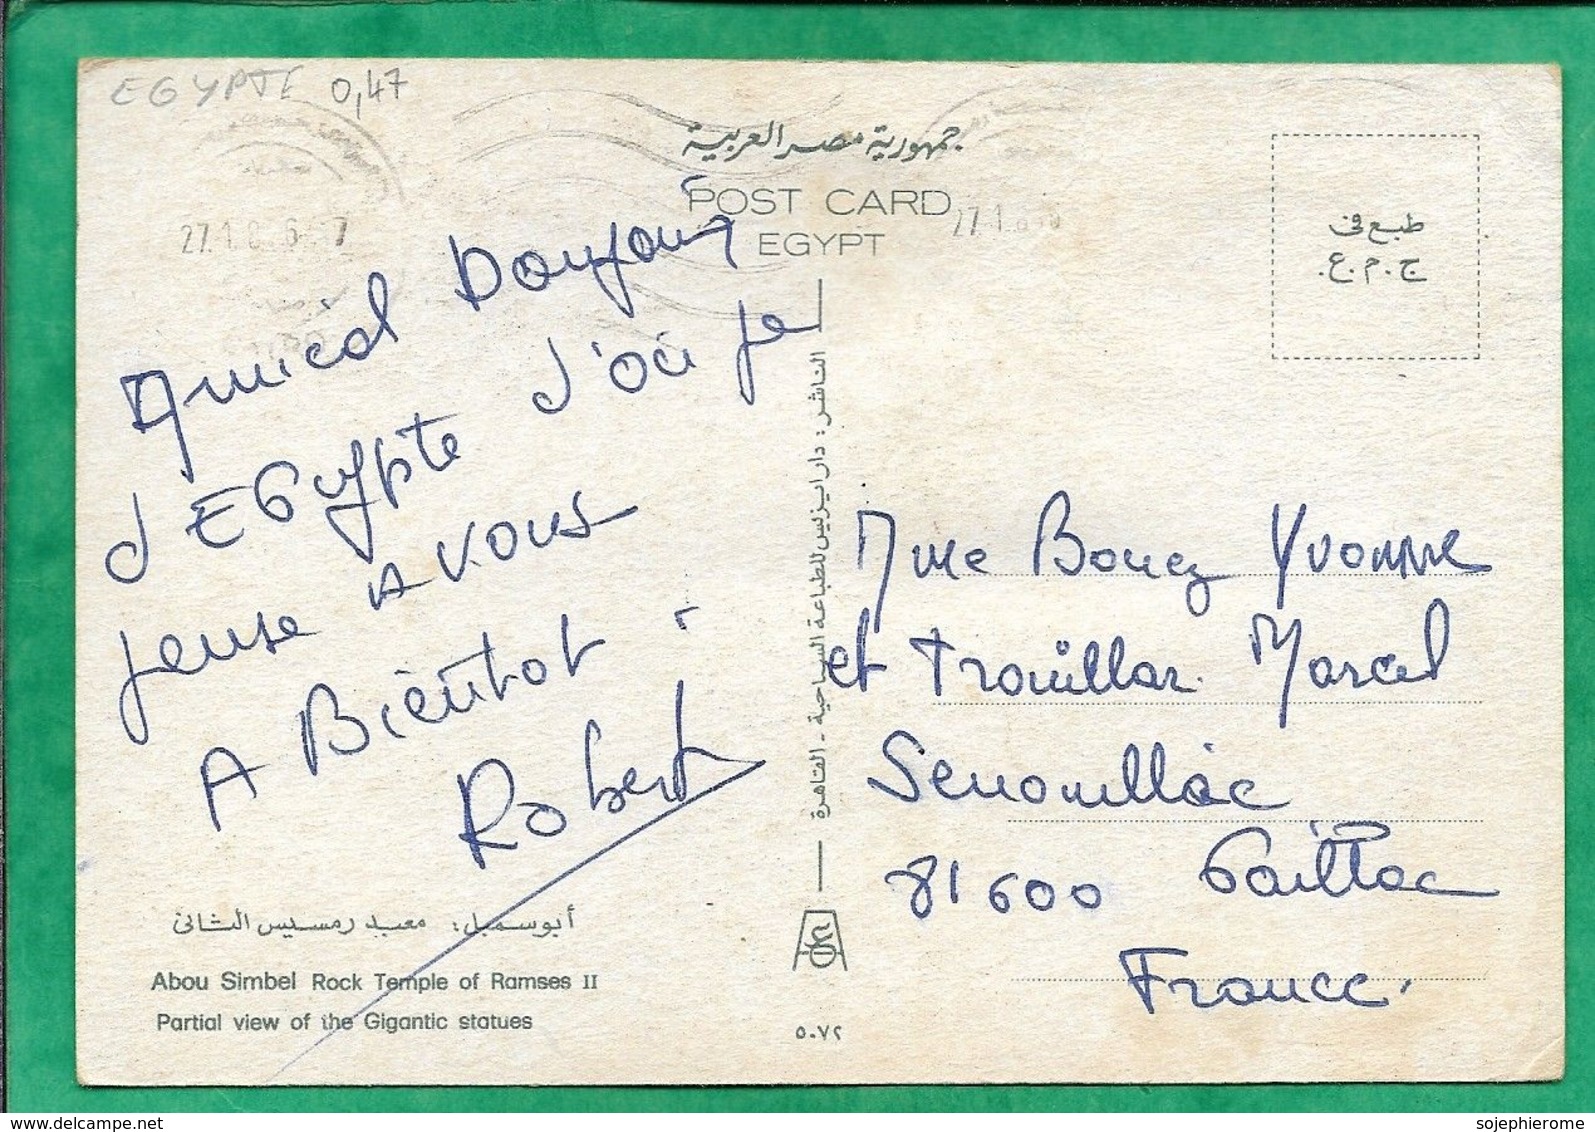 EGYPTE 0,47
جمهورية مصر العربية
POST CARD
EGYPT
27.1.8
طبع فى
ج.م.ع.
Amical Bonjour
d'EGypte d'où je
pense A vous
A Bientot
Robert
الناشر: دار ايزيس للطباعة السياحية - القاهرة
Mme Bouez Yvonne
et Trouillar Marcel
Senouillac
81600 Gaillac
France.
أبوسمبل: معبد رمسيس الثانى
Abou Simbel Rock Temple of Ramses II
Partial view of the Gigantic statues
٥٠٧٢
www.delcampe.net
sojephierome